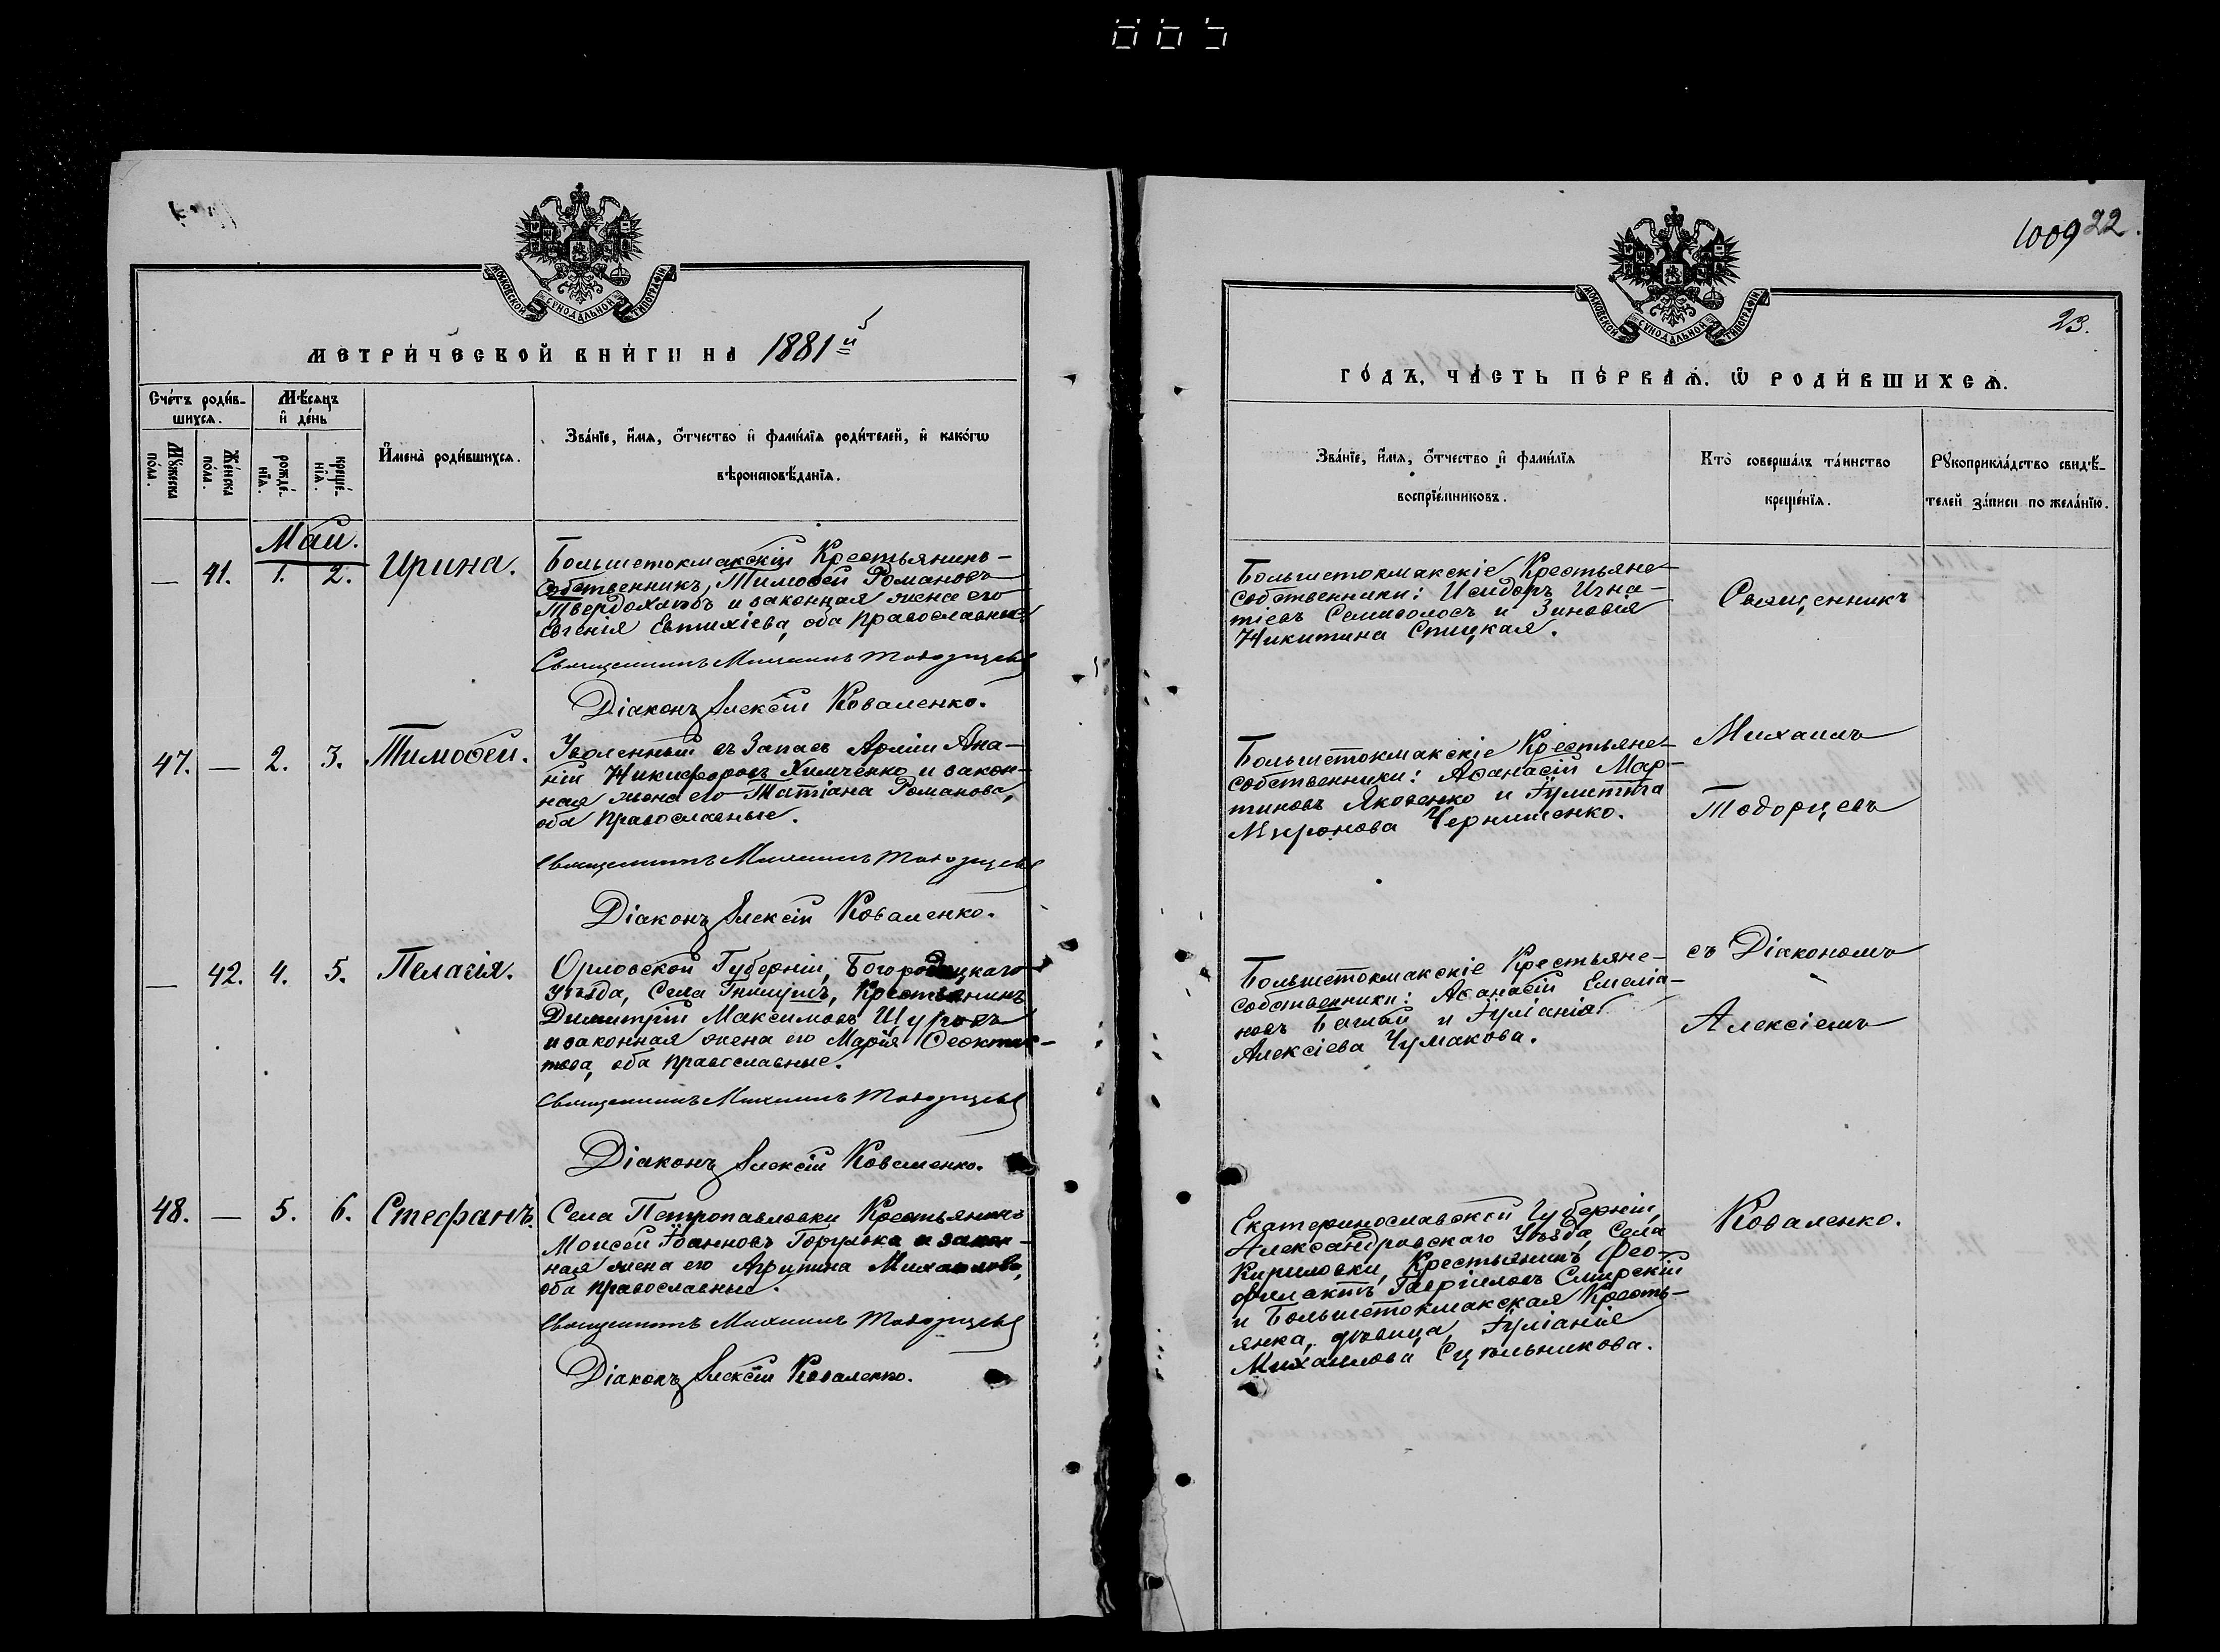 МОСКОВСКОЙ СѴНОДАЛЬНОЙ ТИПОГРАФІИ
МЕТРИЧЕСКОЙ КНИГИ НА 1881й
Счетъ родив-
шихся.
Мѣсяцъ
и день
Мужеска
пола.
Женска
пола.
рожде-
нія.
креще-
нія.
Имена родившихся.
Званіе, имя, отчество и фамилія родителей, и какогѡ
вѣроисповѣданія.
Май.
— 41. 1. 2. Ирина.
Большетокмакскій Крестьянинъ-
собственникъ, Тимофей Романовъ
Твердохлѣбъ и законная жена его
Евгенія Евтихіева, оба православные
Священникъ Михаилъ Тодорцевъ
Діаконъ Алексій Коваленко.
47. — 2. 3. Тимофей.
Уволенный въ Запасъ Арміи Ана-
ній Никифоровъ Химченко и закон-
ная жена его Татіана Романова,
оба православные.
Священникъ Михаилъ Тодорцевъ
Діаконъ Алексій Коваленко.
— 42. 4. 5. Пелагія.
Орловской Губерніи, Богородицкаго
уѣзда, Села Крестьянинъ
Димитрій Максимовъ Щуровъ
и законная жена его Марія Феоктис-
това, оба православные.
Священникъ Михаилъ Тодорцевъ
Діаконъ Алексій Коваленко.
48. — 5. 6. Стефанъ.
Села Петропавловки Крестьянинъ
Моисей Іоанновъ Горулька и закон-
ная жена его Агрипина Михаилова,
оба православные.
Священникъ Михаилъ Тодорцевъ
Діаконъ Алексій Коваленко.
1009 22.
23.
МОСКОВСКОЙ СѴНОДАЛЬНОЙ ТИПОГРАФІИ
ГОДЪ, ЧАСТЬ ПЕРВАЯ. Ѿ РОДИВШИХСЯ.
Званіе, имя, отчество и фамилія
воспріемниковъ.
Кто совершалъ таинство
крещенія.
Рукоприкладство свидѣ-
телей записи по желанію.
Большетокмакскіе Крестьяне-
собственники: Исидоръ Игна-
тіевъ Семиволосъ и Зиновія
Никитина Спицкая.
Священникъ
Большетокмакскіе Крестьяне-
собственники: Афанасій Мар-
тиновъ Яковенко и Іулитта
Миронова Чернишенко.
Михаилъ
Тодорцевъ
Большетокмакскіе Крестьяне-
собственники: Афанасій Емелія-
новъ Баглай и Іуліанія
Алексіева Чумакова.
съ Діакономъ
Алексіемъ
Екатеринославской Губерніи,
Александровскаго Уѣзда, Села
Кириловки, Крестьянинъ Фео-
филактъ Гавріиловъ Смирскій
и Большетокмакская Кресть-
янка, дѣвица, Іуліанія
Михаилова
Коваленко.